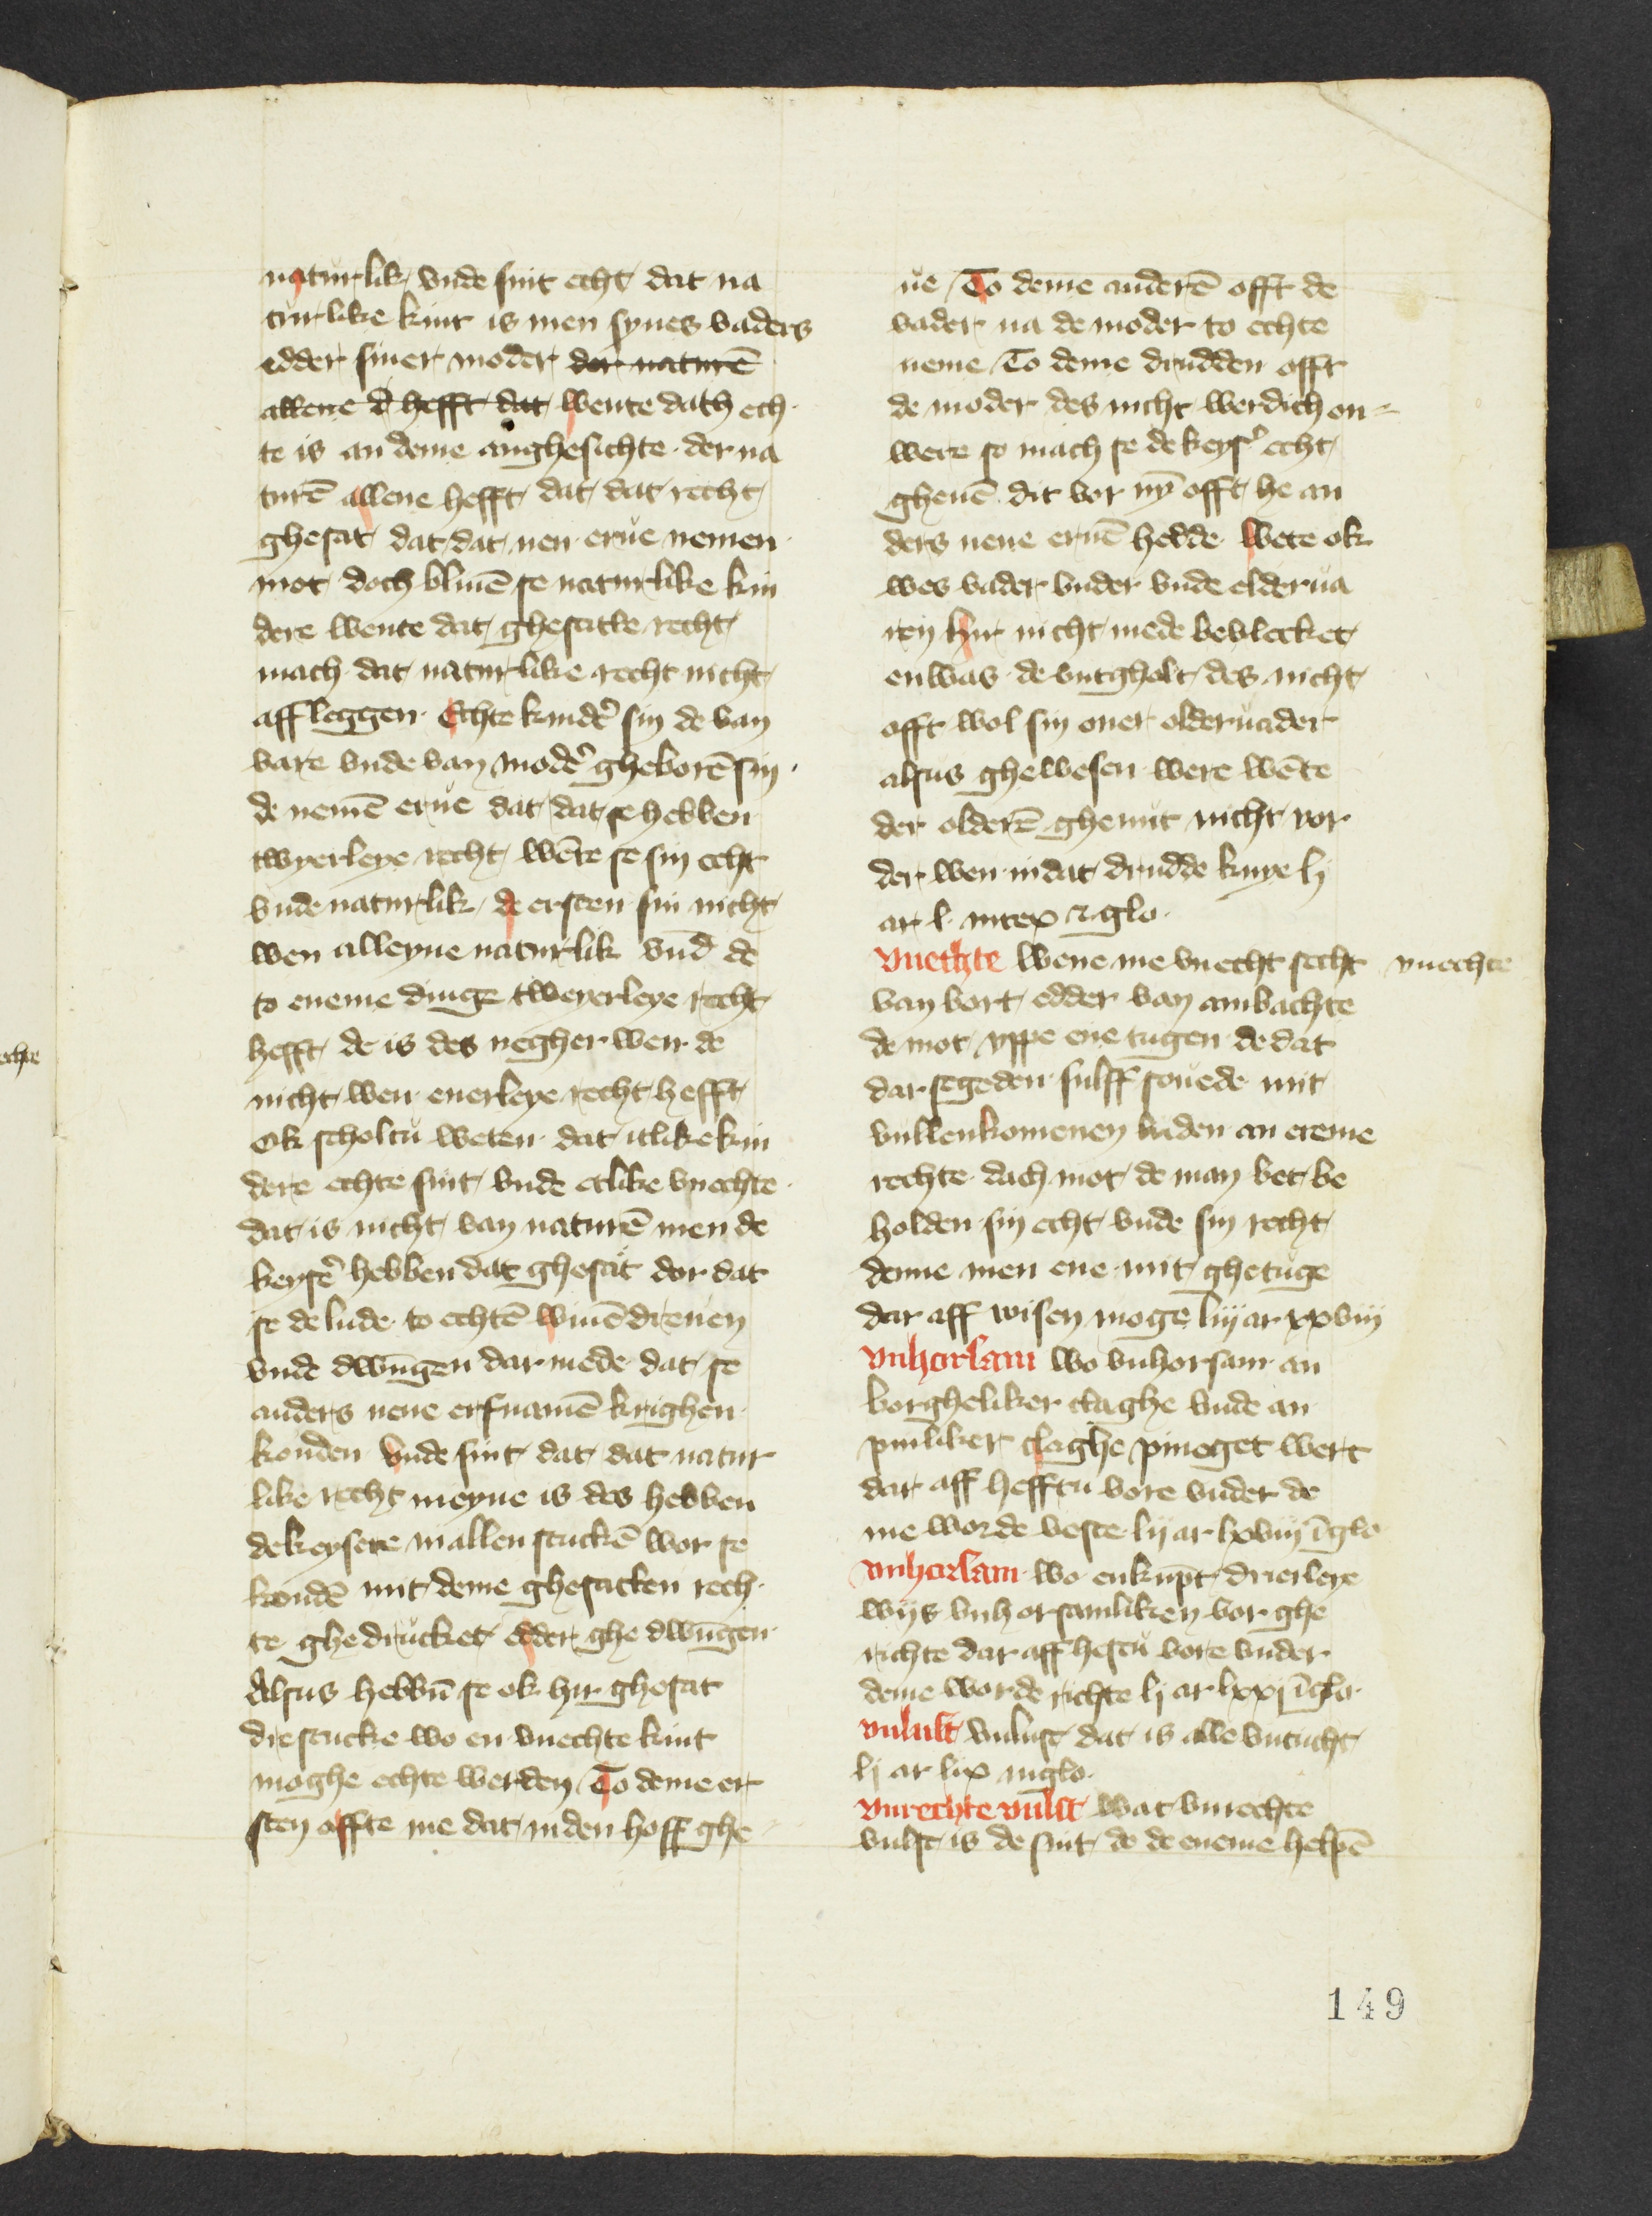 naturlik vnde sint echt dat na
turlike kint is men synes vaders
edder siner moder der naturē
allene d hefft dat wente dath ech
te is an deme anghesichte der na
turē allene hefft dat dat recht
ghesat dat dat nen erue nemen
mot doch bliuē se naturlike kin
dere wente dat ghesatte recht
mach dat naturlike recht nicht
affleggen Echte kinder sin de van
vare vnde van moder gheborē sin
de nemē erue dat dat se hebben
twyerleye recht wēte se sin echt
vnde naturlik de ersten sin nicht
wen alleyne naturlik vnd de
to eneme dinge tweyerleye recht
hefft de is des negher wen de
nicht wen enerleye recht hefft
Ok scholtu weten dat itlike kin
dere echte sint vnde etlike vnechte
dat is nicht van naturē men de
keyser hebben dat ghesat dor dat
se de lude to echtē wiuē dreuen
vnde dwūgen dar mede dat se
anders nene erfnamē krighen
konden vnde sint dat dat natur
like recht meyne is des hebben
de keysere in allen stuckē wor se
kondē mit deme ghesatten rech
te ghedrucket edder ghedwūgen
Alsus hebbū se ok hir ghesat
dre stucke wo en vnechte kint
moghe echte werden To deme er
sten offte me dat in den hoff ghe
ue To deme anderē offt de
vader na de moder to echte
neme To deme drudden offt
de moder des nicht werdich en
were so mach se de keyser echt
gheuē dit vor nȳ offt he an
ders nene eruē hedde wete ok
wes vader vnder vnde elderua
ren hir nicht mede bevlecket
enwas de entgholt des nicht
offt wol sin ouer olderuader
alsus ghewesen were wēte
der olderē ghenut nicht vor
der wen in dat drudde knye li
ar l intex z glo
vnechte Wene me vnecht secht vnechte
van bort edder van ambachte
de mot vppe ene tugen de dat
dar segeden sulff souede mit
vullenkomenen luden an ereme
rechte dach mot de man bet be
holden sin echt vnde sin recht
denne men ene mit ghetuge
dar aff wisen moge liij ar xxviij
vnhorsam wo vnhorsam an
borgheliker claghe vnde an
pinliker claghe pineget wert
dar aff hefftu vore vnder de
me worde veste lij ar lxviij ī glo
vnhorsam wo enkūpt drierleye
wijs vnhorsamliken vor ghe
richte dar aff hestu vore vnder
deme worde richte lj ar lxxj ī glo
vnlust vnlust dat is alle vntucht
lj ar lix in glo
vnrechte vulst wat vnrechte
vulst is de sint de de eneme helpē
149